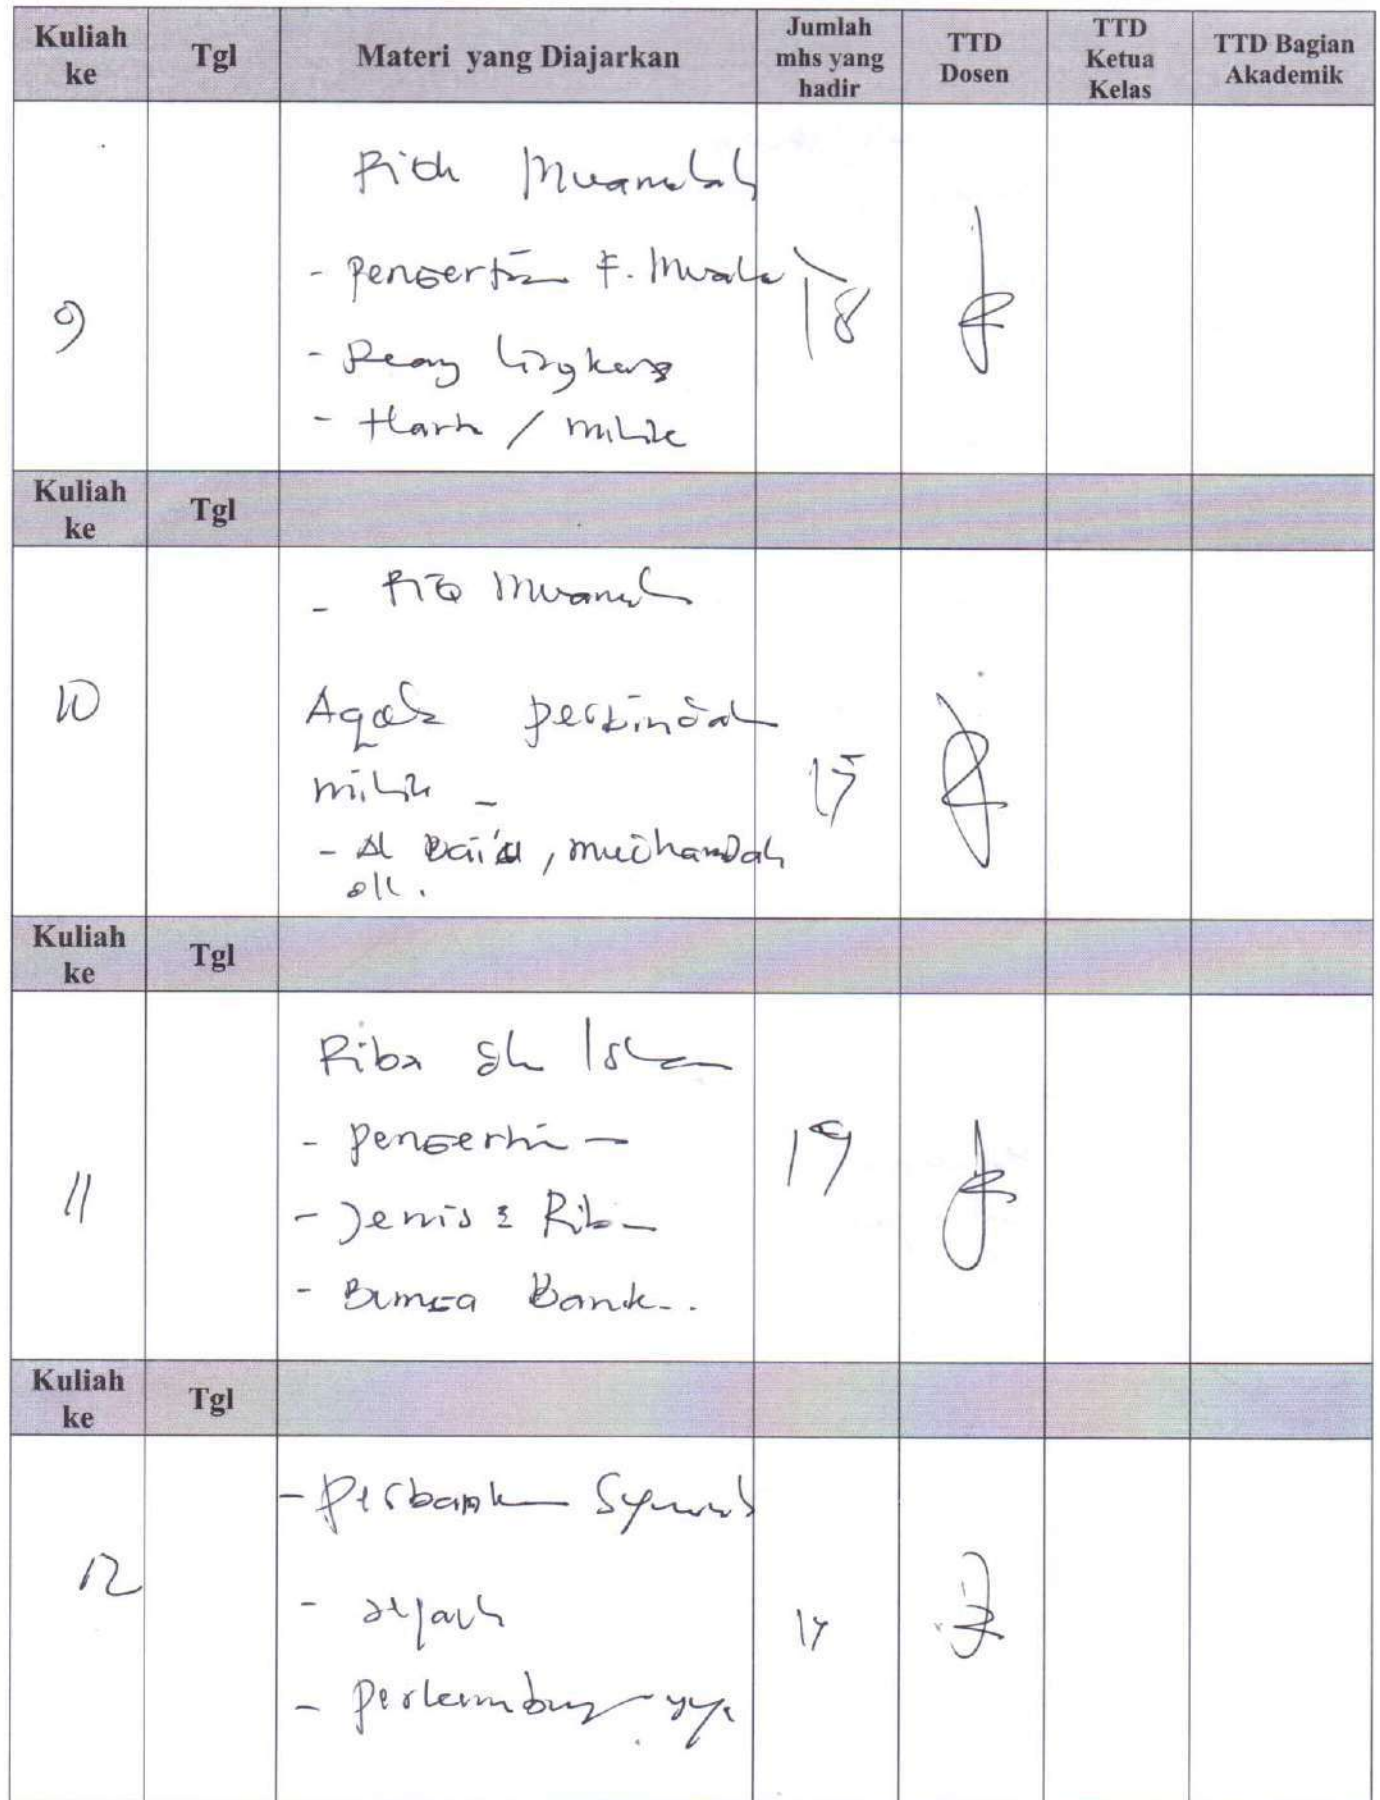 Kuliah ke Tgl Materi yang Diajarkan Jumlah mhs yang hadir TTD Dosen TTD Ketua Kelas TTD Bagian Akademik
Fiqh Muamalah
- Pengertian F. Muamala
9 18
- Ruang lingkung
- Harta / milik
Kuliah ke Tgl
- Fiq Muamalah
10 Aqad perpindah
milik -
- Al Bai'u,
dll.
Kuliah ke Tgl
Riba dlm Islam
- Pengertian 19
11
- Jenis2 Riba
- Bunga Bank..
Kuliah ke Tgl
- Perbankan Syariah
12
- sejarah
- Perkembangannya